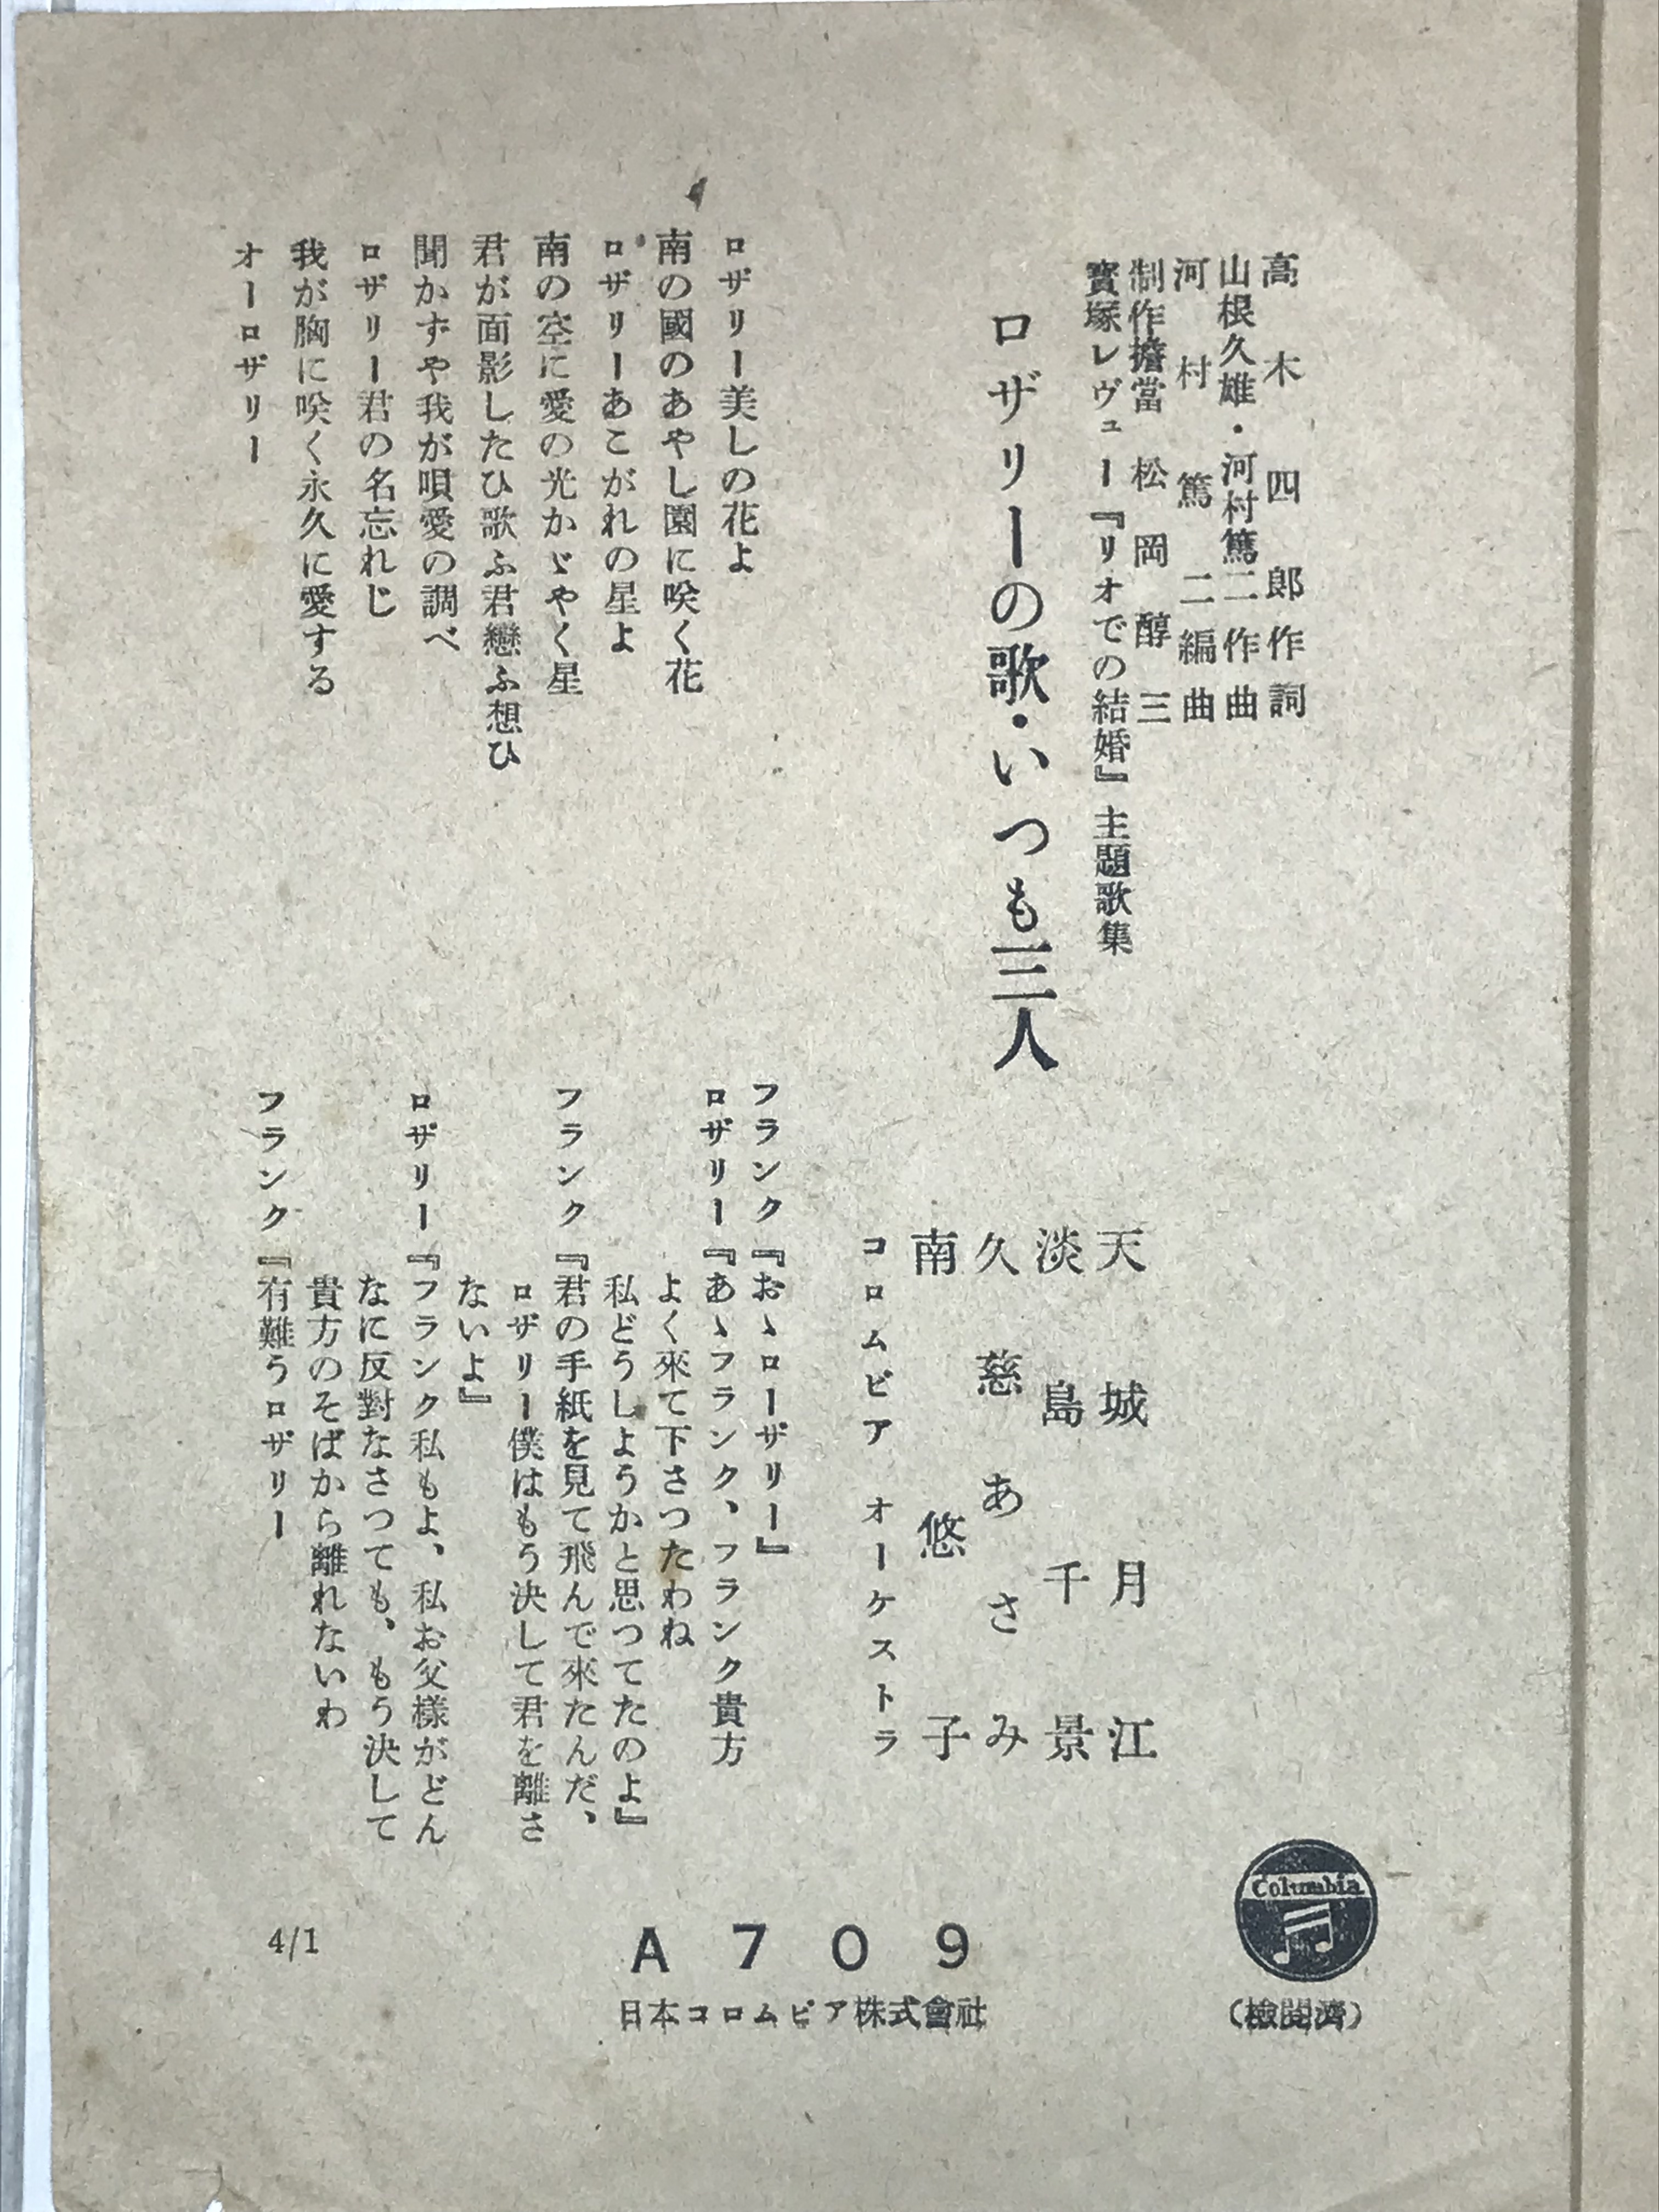 高木四郎作詞
山根久雄・河村篤二作曲
河村篤二編曲
制作擔當 松岡醇三
寶塚レヴュー『リオでの結婚』主題歌集
ロザリーの歌・いつも三人
天城月江
淡島千景
久慈あさみ
南悠子
コロムビア オーケストラ
ロザリー美しの花よ
南の國のあやし園に咲く花
ロザリーあこがれの星よ
南の空に愛の光かゞやく星
君が面影したひ歌ふ君戀ふ想ひ
聞かずや我が唄愛の調べ
ロザリー君の名忘れじ
我が胸に咲く永久に愛する
オーロザリー
フランク『おゝローザリー』
ロザリー『あゝフランク、フランク貴方
よく來て下さつたわね
私どうしようかと思つてたのよ』
フランク『君の手紙を見て飛んで來たんだ、
ロザリー僕はもう決して君を離さ
ないよ』
ロザリー『フランク私もよ、私お父様がどん
なに反對なさつても、もう決して
貴方のそばから離れないわ
フランク『有難うロザリー
Columbia
(檢閲濟)
A709
日本コロムビア株式會社
4/1